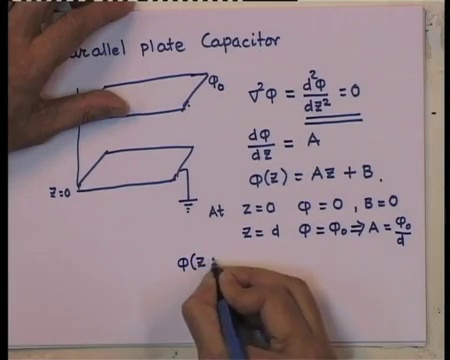 Parallel plate Capacitor
φ₀
∇²φ = d²φ/dz² = 0
dφ/dz = A
φ(z) = Az + B.
z=0
At z=0 φ=0, B=0
z=d φ=φ₀ ⇒ A = φ₀/d
φ(z